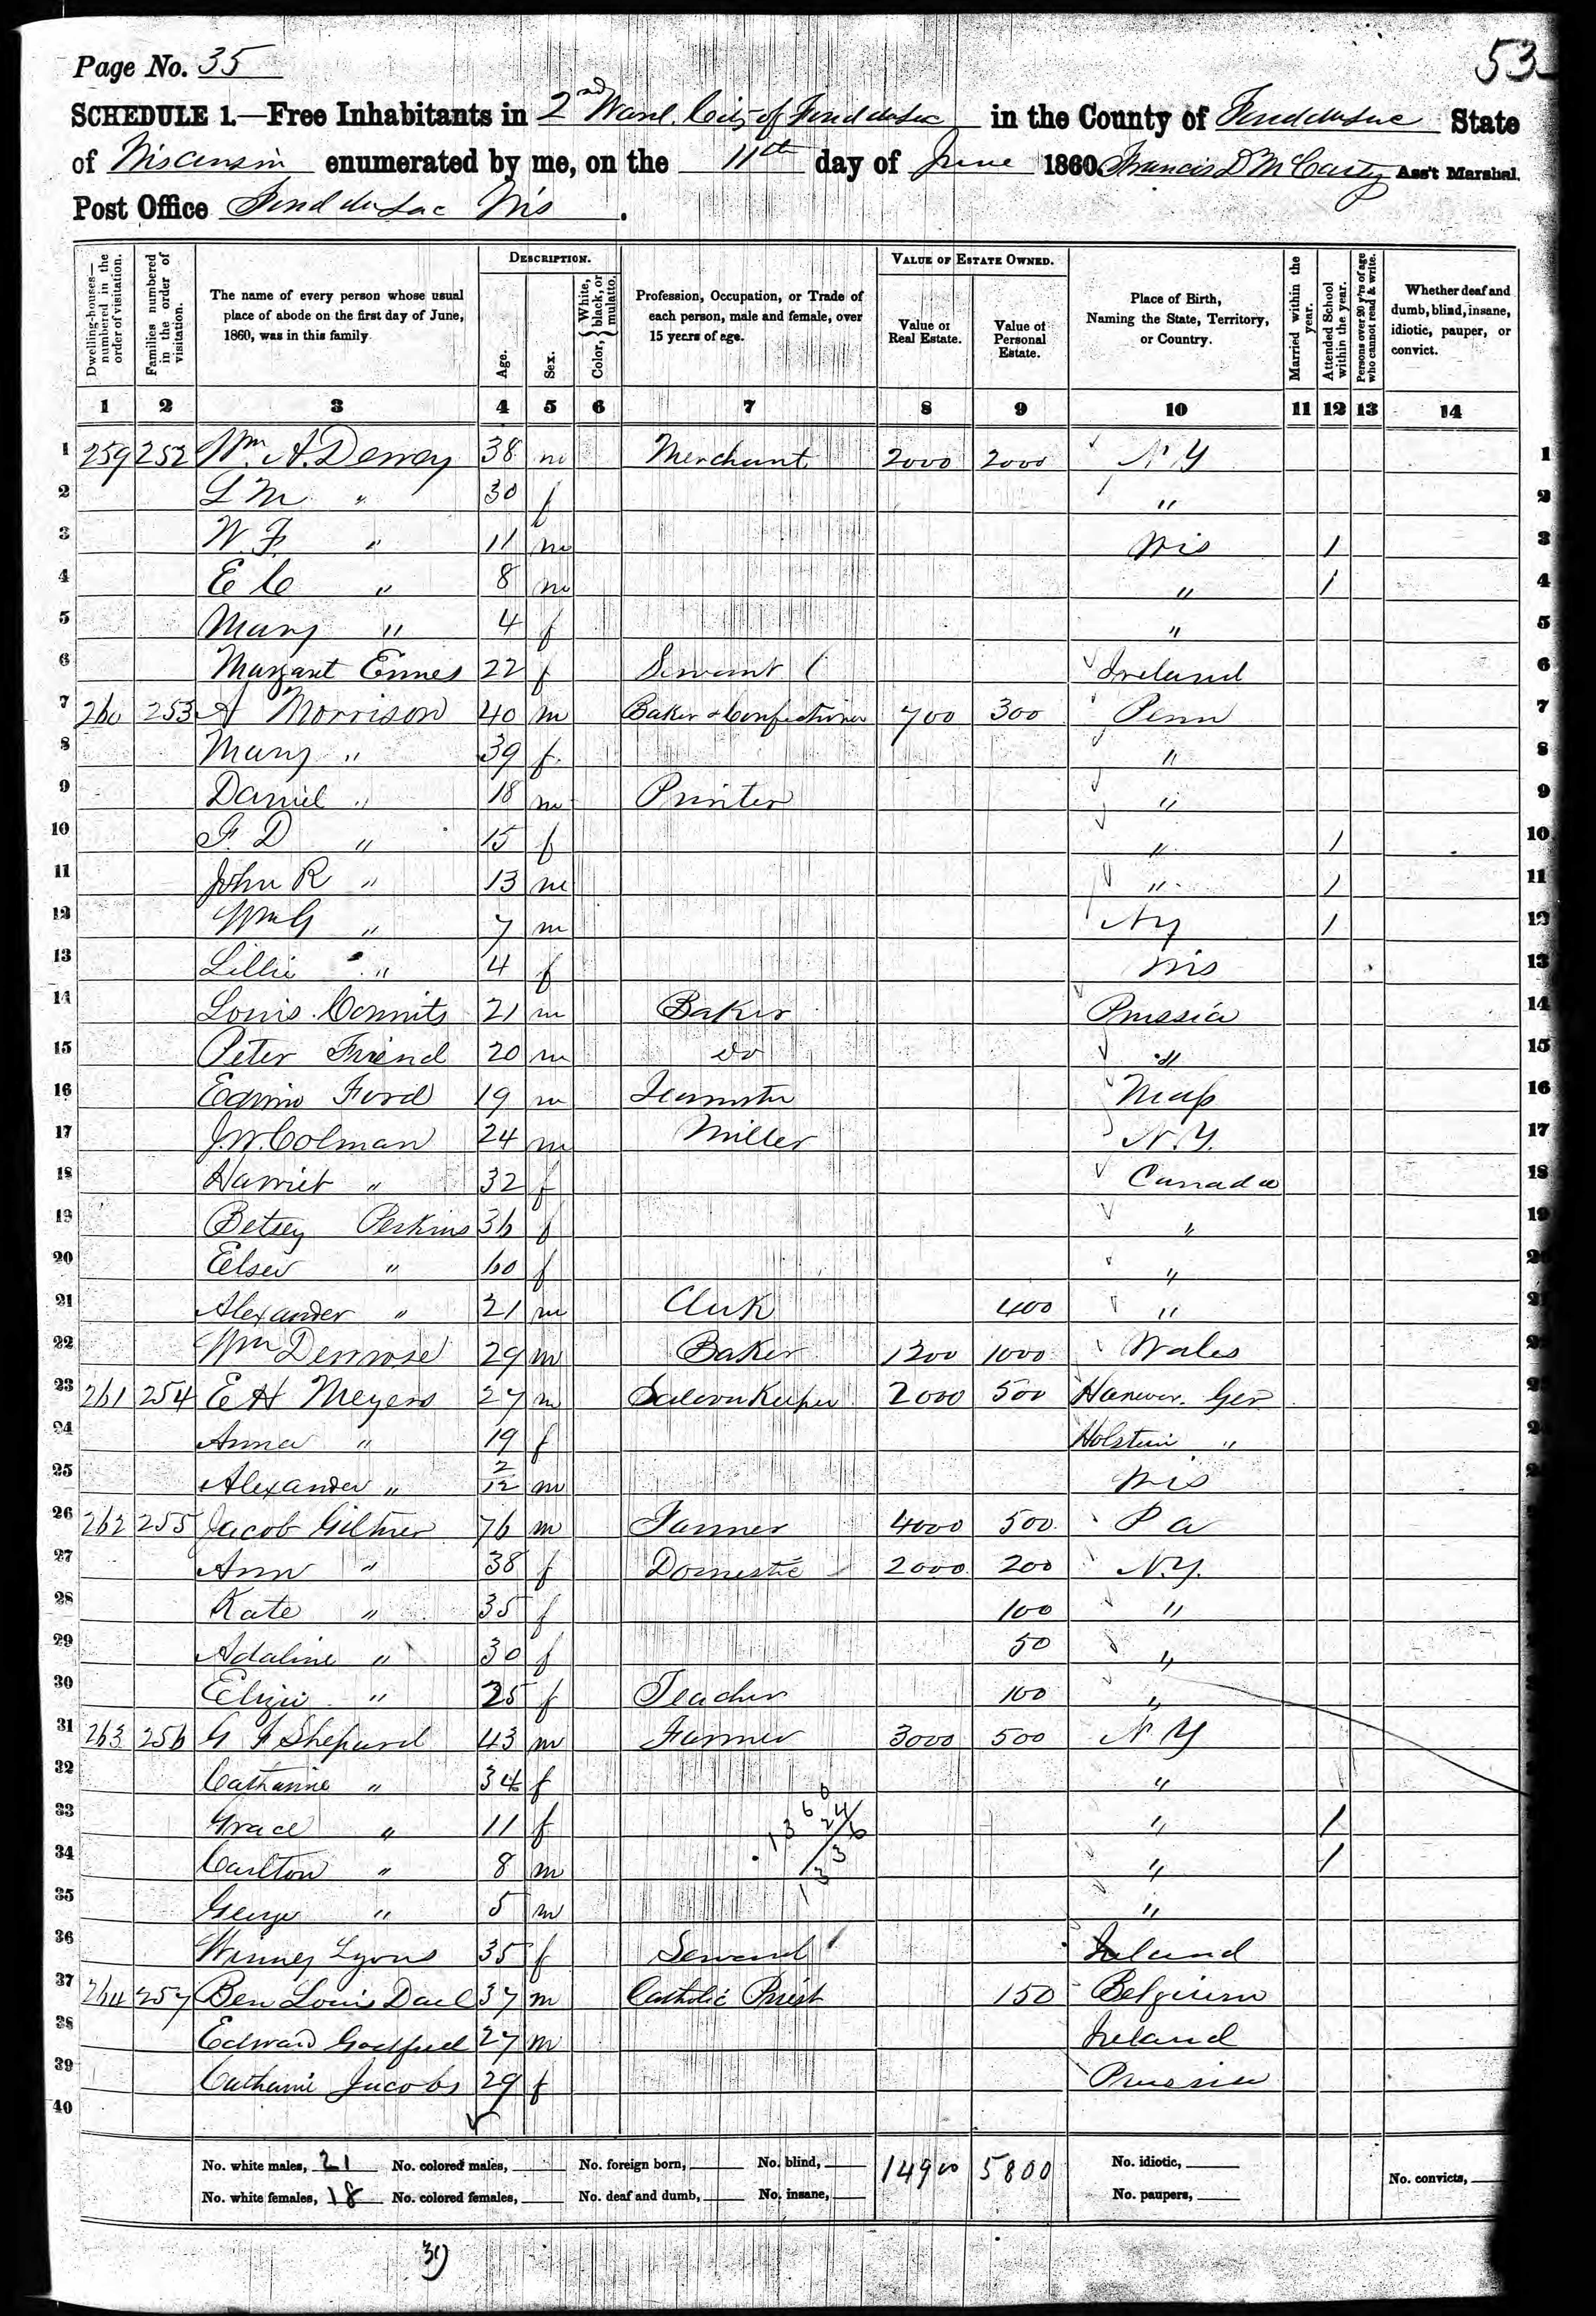 Page No. 35
53
SCHEDULE 1.—Free Inhabitants in 2nd Ward, City of Fond du Lac in the County of Fond du Lac State
of Wisconsin enumerated by me, on the 11th day of June 1860. Francis D McCarty Ass't Marshal.
Post Office Fond du Lac Wis.
Dwelling-houses—numbered in the order of visitation.
Families numbered in the order of visitation.
The name of every person whose usual place of abode on the first day of June, 1860, was in this family.
DESCRIPTION.
Age.
Sex.
Color, {White, black, or mulatto.
Profession, Occupation, or Trade of each person, male and female, over 15 years of age.
VALUE OF ESTATE OWNED.
Value of Real Estate.
Value of Personal Estate.
Place of Birth, Naming the State, Territory, or Country.
Married within the year.
Attended School within the year.
Persons over 20 y'rs of age who cannot read & write.
Whether deaf and dumb, blind, insane, idiotic, pauper, or convict.
1 2 3 4 5 6 7 8 9 10 11 12 13 14
1 259 252 Wm. A. Dewey 38 m Merchant 2000 2000 N Y 1
2 L M " 30 f " 2
3 W. F. " 11 m Wis / 3
4 E C " 8 m " / 4
5 Mary " 4 f " 5
6 Margaret Ennes 22 f Servant Ireland 6
7 260 253 A Morrison 40 m Baker & Confectioner 700 300 Penn 7
8 Mary " 39 f " 8
9 Daniel " 18 m Printer " 9
10 F. D " 15 f " / 10
11 John R " 13 m " / 11
12 Wm G " 7 m N Y / 12
13 Lillie " 4 f Wis 13
14 Louis 21 m Baker Prussia 14
15 Peter Friend 20 m do " 15
16 Edwin Ford 19 m Teamster Mass 16
17 J. W. Colman 24 m Miller N. Y. 17
18 Harriet " 32 f Canada 18
19 Betsey Perkins 36 f " 19
20 Elsie " 60 f "
21 Alexander " 21 m Clerk 400 "
22 Wm 29 m Baker 1200 1000 Wales
23 261 254 E H Meyers 27 m Saloon Keeper 2000 500 Hanover. Ger
24 Anna " 19 f Holstein "
25 Alexander " 2/12 m Wis
26 262 255 Jacob Giltner 76 m Farmer 4000 500 Pa
27 Ann " 38 f Domestic 2000 200 N. Y.
28 Kate " 35 f 100 "
29 Adaline " 30 f 50 "
30 Eliza " 25 f Teacher 100 "
31 263 256 G F Shepard 43 m Farmer 3000 500 N Y
32 Catharine " 34 f "
33 Grace " 11 f " /
34 Carlton " 8 m " /
35 George " 5 m "
36 Winney Lyons 35 f Servant Ireland
37 264 257 Ben Louis Dael 37 m Catholic Priest 150 Belgium
38 Edward 27 m Ireland
39 Catharine Jacobs 29 f Prussia
40
No. white males, 21 No. colored males, No. foreign born, No. blind, 14900 5800 No. idiotic, No. convicts,
No. white females, 18 No. colored females, No. deaf and dumb, No. insane, No. paupers,
39